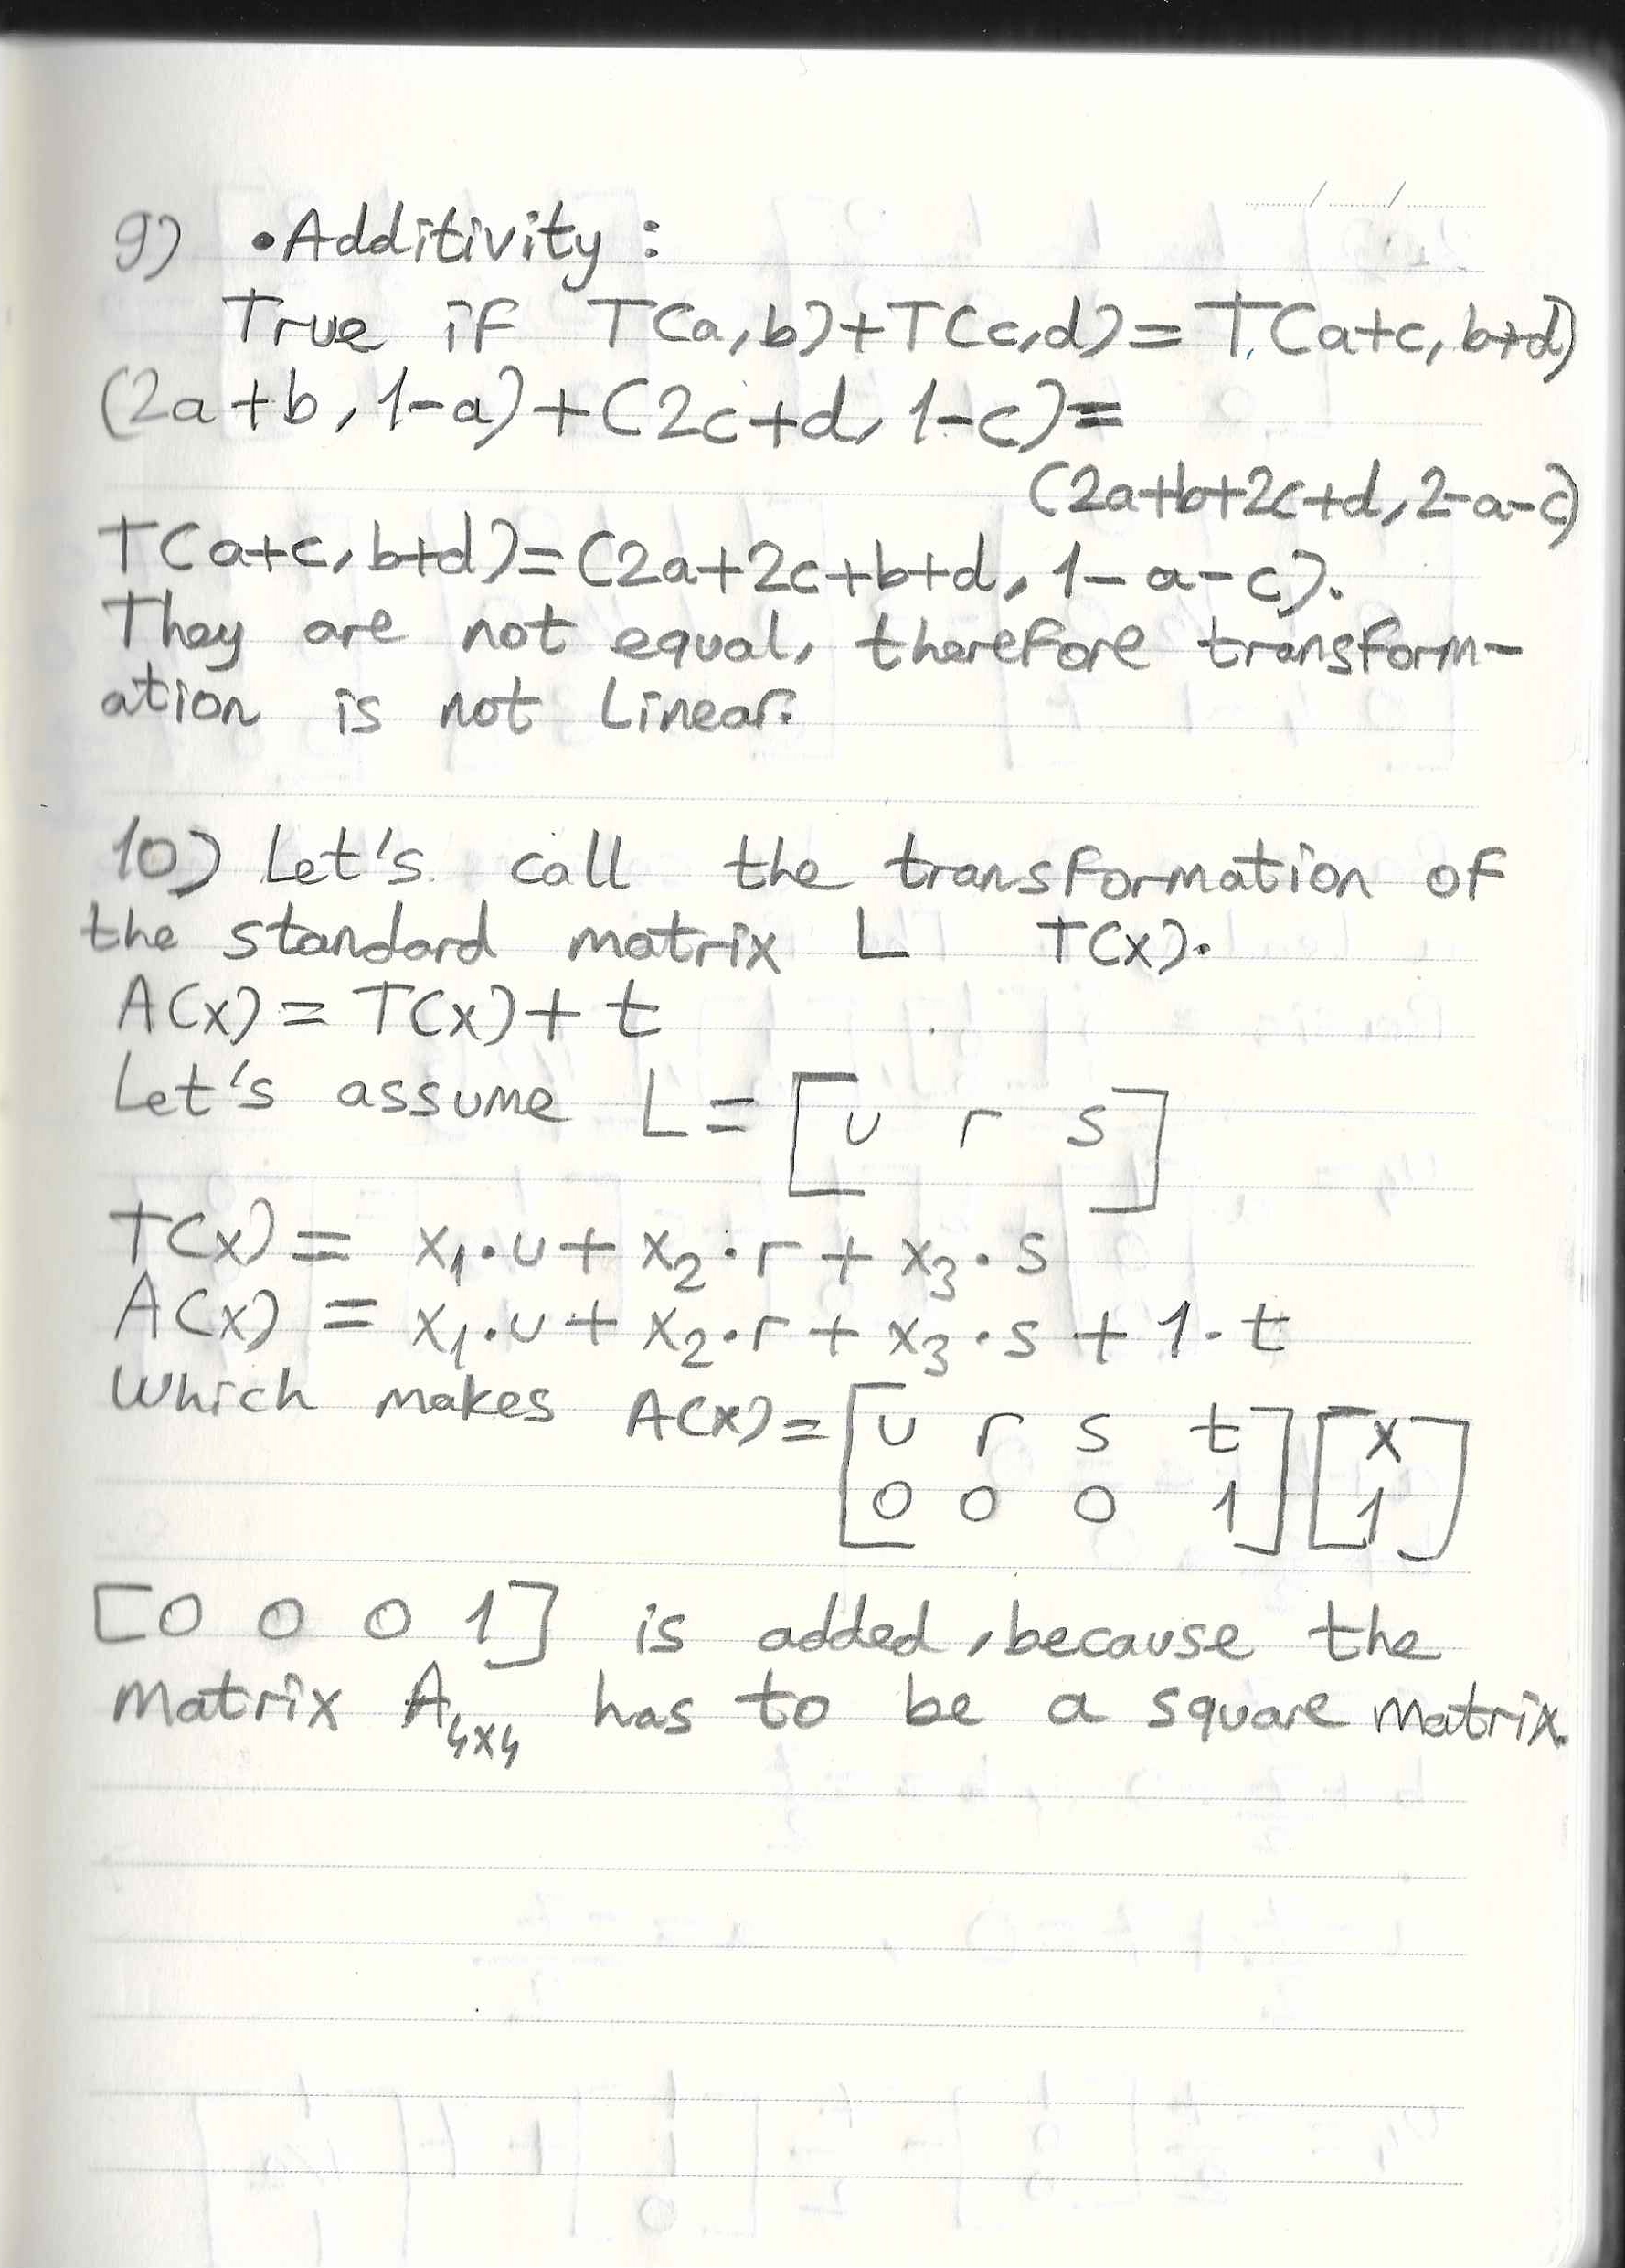 9) •Additivity :
True if T(a,b)+T(c,d)= T(a+c, b+d)
(2a+b, 1-a)+(2c+d, 1-c)=
(2a+b+2c+d, 2-a-c)
T(a+c, b+d)=(2a+2c+b+d, 1-a-c).
They are not equal, therefore transform-
ation is not linear.
10) Let's call the transformation of
the standard matrix L T(x).
A(x) = T(x)+t
Let's assume L= [u r s]
T(x)= x₁·u+x₂·r+x₃·s
A(x) = x₁·u+x₂·r+x₃·s+1·t
Which makes A(x)= [u r s t] [x]
[0 0 0 1] [1]
[0 0 0 1] is added, because the
matrix A₄ₓ₄ has to be a square matrix.